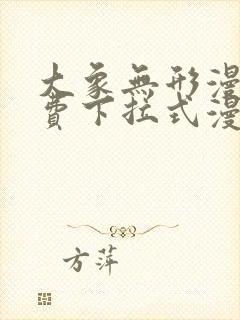 大象無形漫
費下拉式漫
方萍